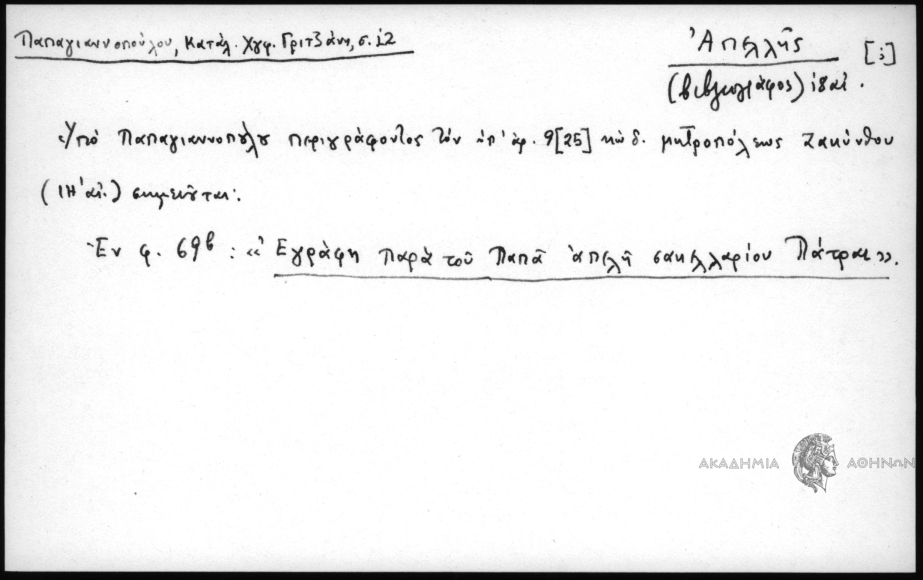 Παπαγιαννοπούλου, Κατάλ. Χγφ. Γριτζάνη, σ. 12
Ἀπελλῆς [i]
(βιβλιογράφος) 18 αἰ.
Ὑπὸ Παπαγιαννοπούλου περιγράφοντος τὸν ὑπ' ἀρ. 9[25] κώδ. μητροπόλεως Ζακύνθου
(ΙΗ' αἰ.) σημειοῦται:
Ἐν φ. 69β : «Ἐγράφη παρὰ τοῦ Παπᾶ ἀπελῆ σακελλαρίου Πάτραι».
ΑΚΑΔΗΜΙΑ ΑΘΗΝΩΝ